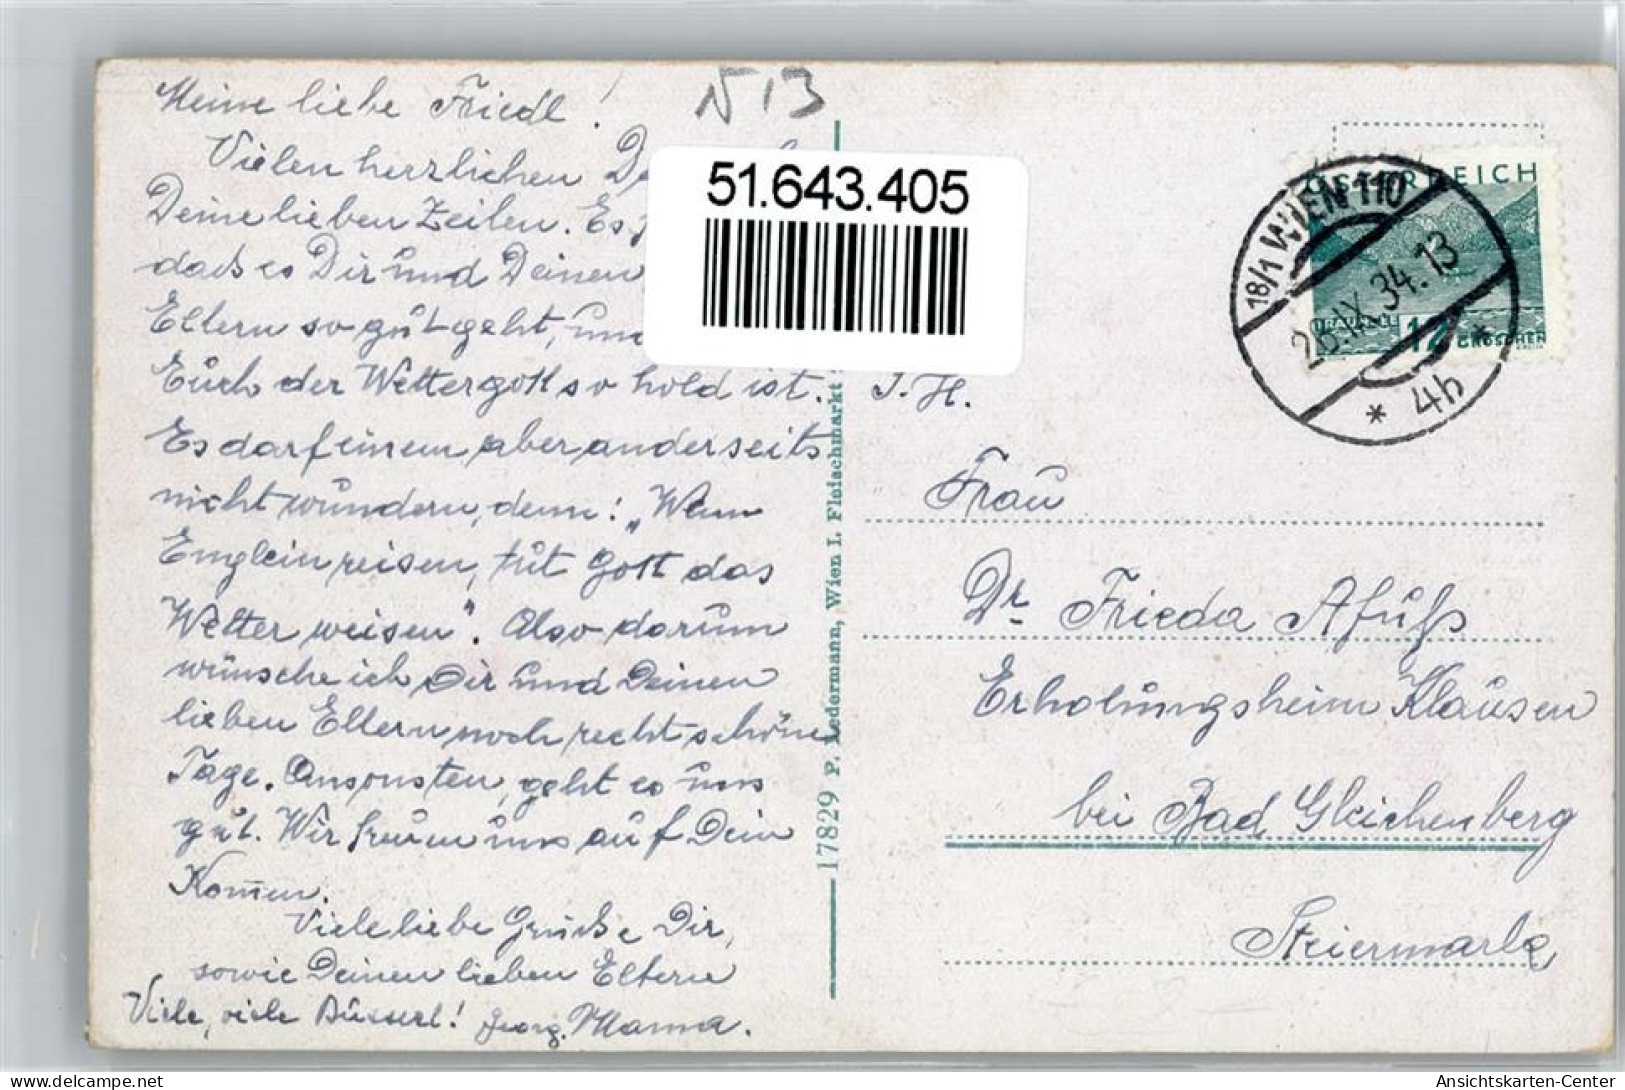 Meine liebe Friedl!
Vielen herzlichen
Deine lieben Zeilen. Es
daß es Dir und Deinen
Eltern so gut geht, und
Euch der Wettergott so hold ist.
Es darf einem aber anderseits
nicht wundern, denn: „Wenn
Englein reisen, tut Gott das
Wetter weisen". Also darum
wünsche ich Dir und Deinen
lieben Eltern noch recht schöne
Tage. Ansonsten, geht es uns
gut. Wir freuen uns auf Dein
Kom̄en.
Viele liebe Grüße Dir,
sowie Deinen lieben Eltern
Viele, viele Busserl! Georg.
N 13
51.643.405
17829 P. Ledermann, Wien I. Fleischmarkt
ÖSTERREICH
12 GROSCHEN
18/1 WIEN 110
28.IX.34.13
* 4h *
I. H.
Frau
Dr. Frieda
Erholungsheim Klausen
bei Bad Gleichenberg
Steiermark
Ansichtskarten-Center